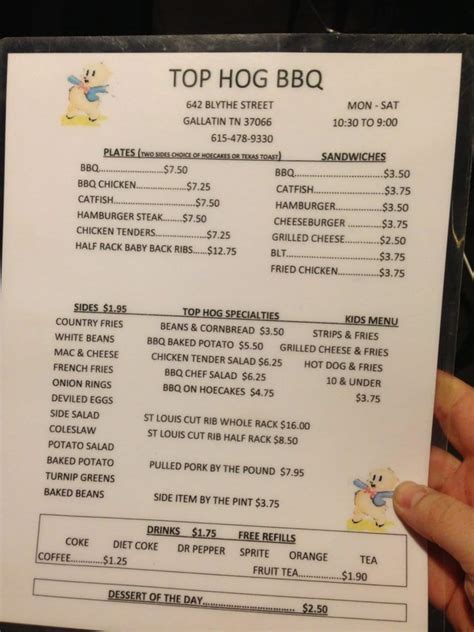 TOP HOG BBQ
642 BLYTHE STREET MON - SAT
GALLATIN TN 37066 10:30 TO 9:00
615-478-9330
PLATES (TWO SIDES CHOICE OF HOECAKES OR TEXAS TOAST)
BBQ.....................$7.50
BBQ CHICKEN...............$7.25
CATFISH.....................$7.50
HAMBURGER STEAK......$7.50
CHICKEN TENDERS..........$7.25
HALF RACK BABY BACK RIBS......$12.75
SANDWICHES
BBQ........................$3.50
CATFISH...................$3.75
HAMBURGER..............$3.50
CHEESEBURGER ............$3.75
GRILLED CHEESE...........$2.50
BLT........................$3.75
FRIED CHICKEN............$3.75
SIDES $1.95
COUNTRY FRIES
WHITE BEANS
MAC & CHEESE
FRENCH FRIES
ONION RINGS
DEVILED EGGS
SIDE SALAD
COLESLAW
POTATO SALAD
BAKED POTATO
TURNIP GREENS
BAKED BEANS
TOP HOG SPECIALTIES
BEANS & CORNBREAD $3.50
BBQ BAKED POTATO $5.50
CHICKEN TENDER SALAD $6.25
BBQ CHEF SALAD $6.25
BBQ ON HOECAKES $4.75
ST LOUIS CUT RIB WHOLE RACK $16.00
ST LOUIS CUT RIB HALF RACK $8.50
PULLED PORK BY THE POUND $7.95
SIDE ITEM BY THE PINT $3.75
KIDS MENU
STRIPS & FRIES
GRILLED CHEESE & FRIES
HOT DOG & FRIES
10 & UNDER
$3.75
DRINKS $1.75 FREE REFILLS
COKE DIET COKE DR PEPPER SPRITE ORANGE TEA
COFFEE.........$1.25 FRUIT TEA............$1.90
DESSERT OF THE DAY........................ $2.50